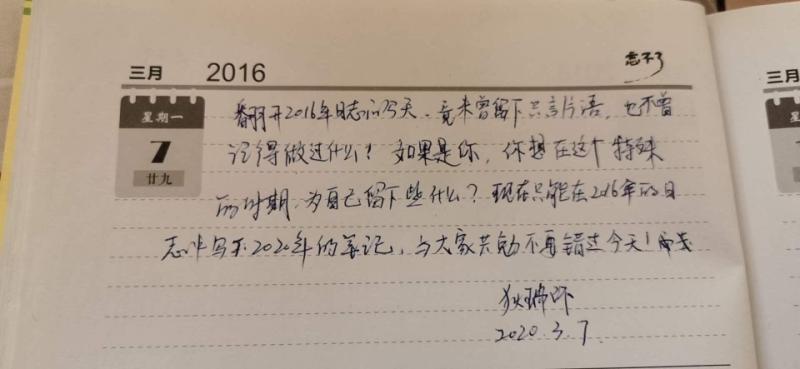 三月 2016
忘不了
星期一
7
廿九
翻开2016年日志的今天、竟未曾留下只言片语，也不曾
记得做过什么？如果是你，你想在这个特殊
的时期，为自己留下些什么？现在只能在2016年的日
志中写下2020年的笔记，与大家共勉不再错过今天！
2020.3.7
三月